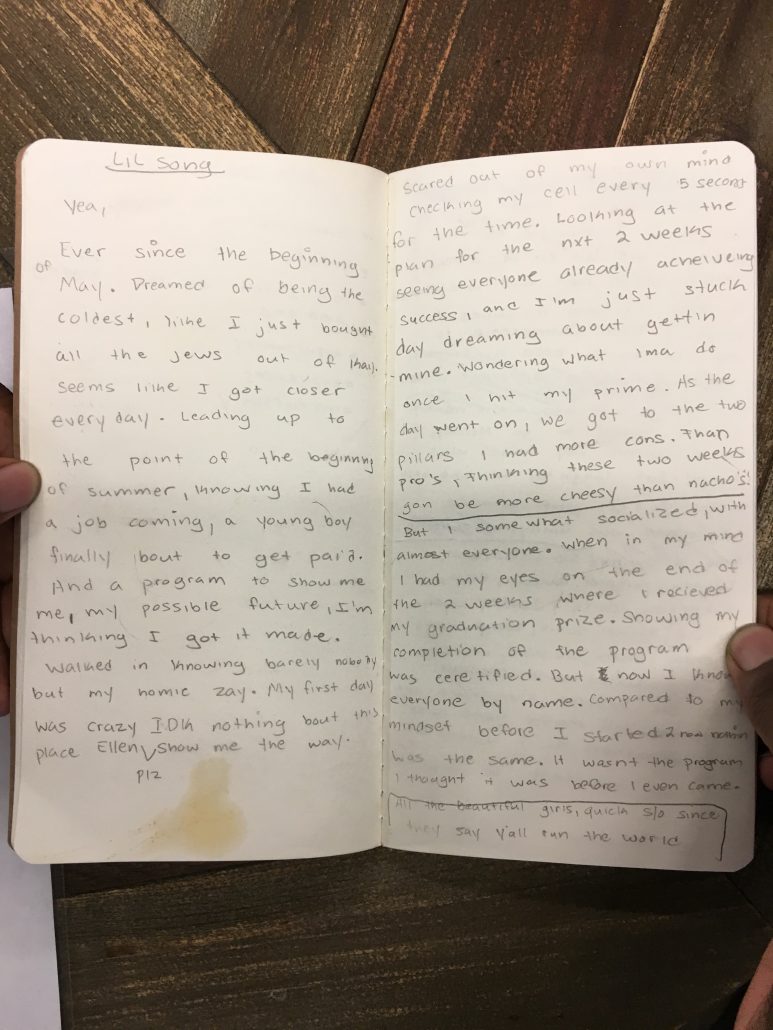 LiL Song
Yea,
Ever since the beginning
of May. Dreamed of being the
coldest, like I just bought
all the Jews out of
Seems like I got closer
every day. Leading up to
the point of the beginning
of summer, knowing I had
a job coming, a young boy
finally bout to get paid.
And a program to show me
me, my possible future, I'm
thinking I got it made.
Walked in knowing barely nobody
but my homie zay. My first day
was crazy IDK nothing bout this
place Ellen plz show me the way.
scared out of my own mind
checking my cell every 5 second
for the time. Looking at the
plan for the nxt 2 weeks
seeing everyone already acheiveing
success, and I'm just stuck
day dreaming about gettin
mine. Wondering what Ima do
once I hit my prime. As the
day went on, we got to the two
pillars I had more cons. Than
pro's, Thinking these two weeks
gon be more cheesy than nacho's!
But I some what socialized, with
almost everyone. when in my mind
I had my eyes on the end of
the 2 weeks where I recieved
my graduation prize. Showing my
completion of the program
was ceretified. But now I know
everyone by name. Compared to my
mindset before I started 2 now nothin
was the same. It wasnt the program
I thought it was before I even came.
All the beautiful girls, quick s/o since
they say y'all run the world